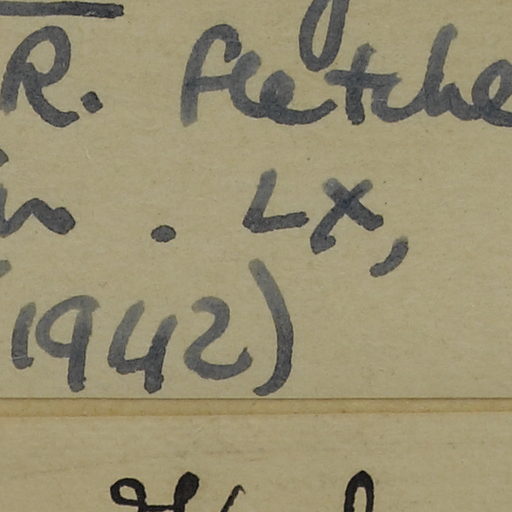 R. Fletche
. LX,
1942)